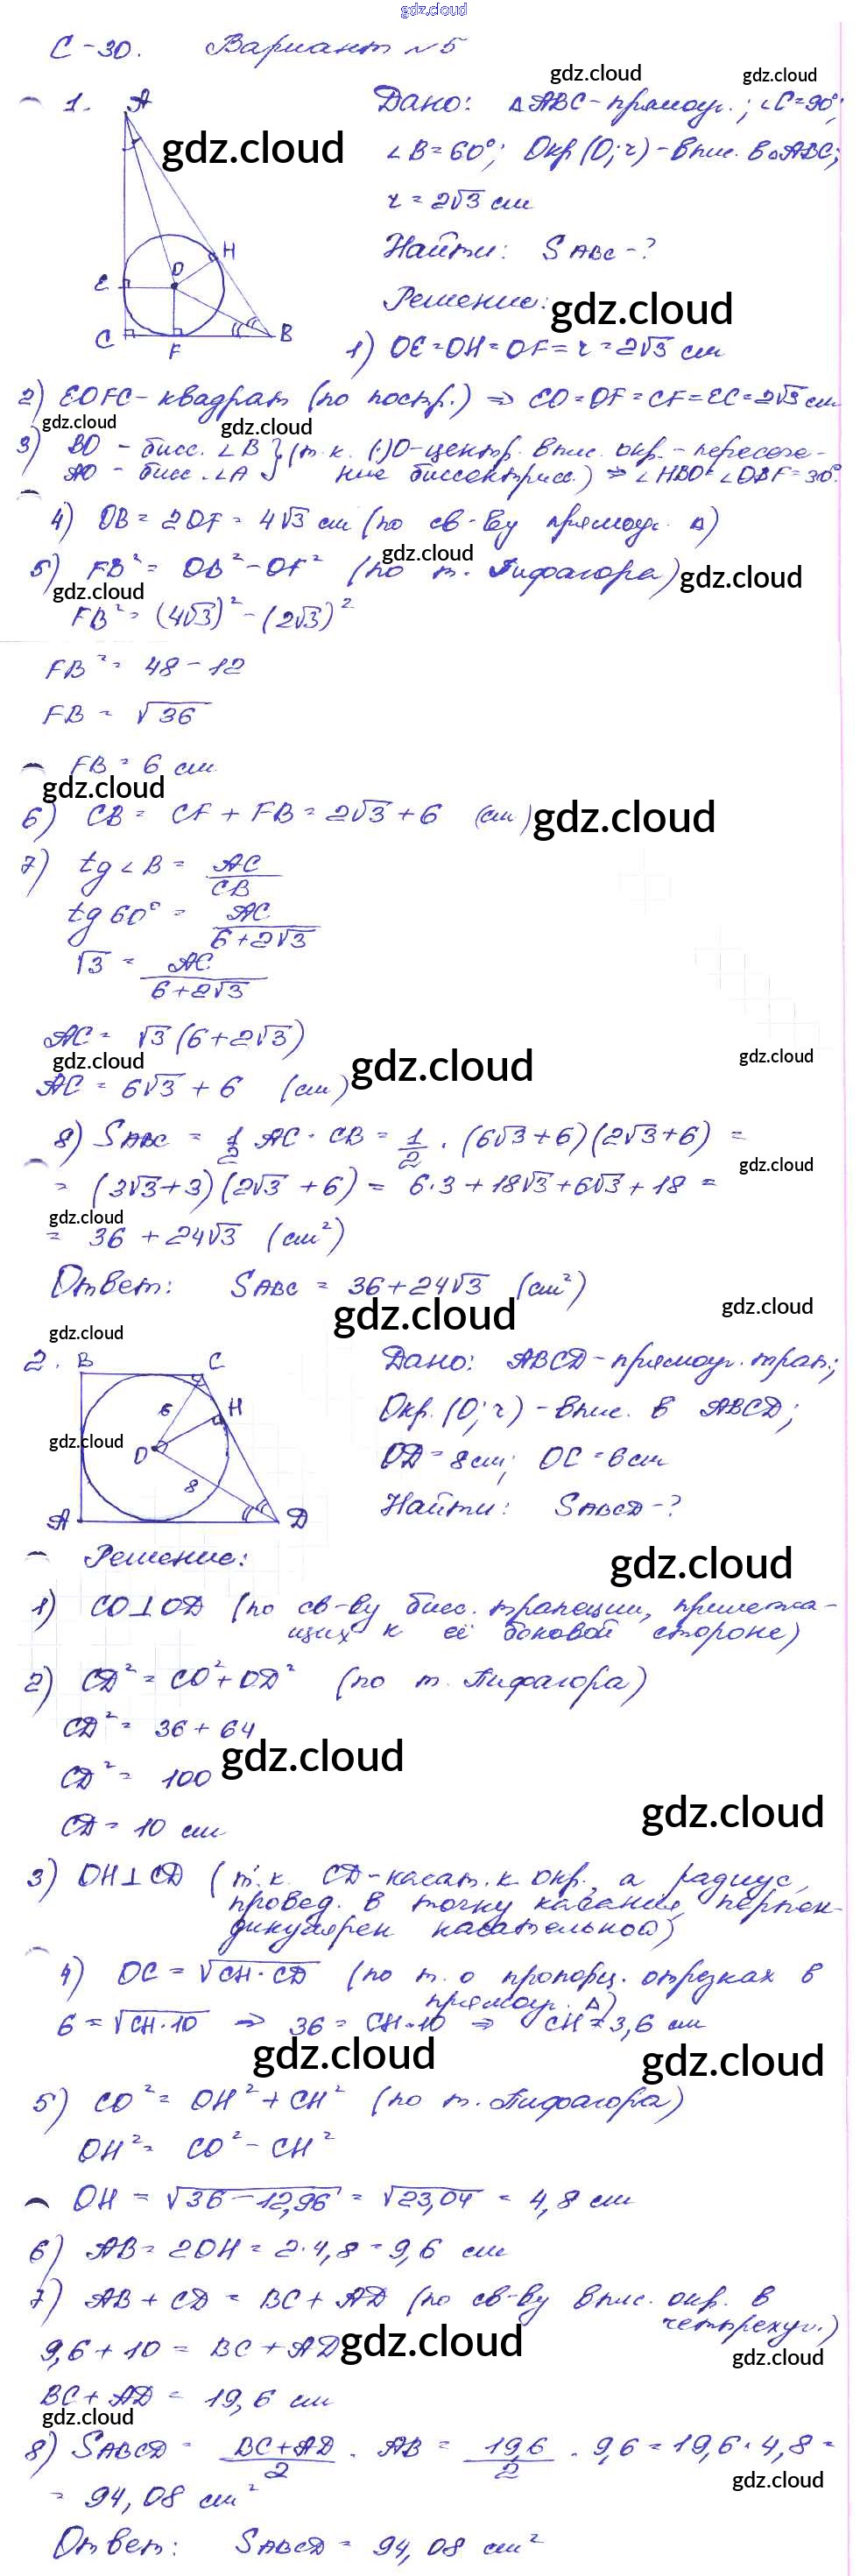 gdz.cloud
С-30. Вариант №5
gdz.cloud gdz.cloud
1. A Дано: △ABC-прямоуг.; ∠C=90°;
gdz.cloud
∠B=60°; Окр(O;r)-впис. в △ABC;
r=2√3 см
H Найти: S ABC-?
O
E Решение:
gdz.cloud
C F B
1) OE=OH=OF=r=2√3 см
2) EOFC-квадрат (по постр.) ⇒ CO=OF=CF=EC=2√3 см
gdz.cloud gdz.cloud
3) BO - бисс. ∠B } (т.к. (·)O-центр. впис. окр.-пересече-
AO - бисс. ∠A ние биссектрисс.) ⇒ ∠HBO=∠OBF=30°.
4) OB=2OF=4√3 см (по св-ву прямоуг. △)
gdz.cloud
5) FB²=OB²-OF² (по т. Пифагора)
gdz.cloud gdz.cloud
FB²=(4√3)²-(2√3)²
FB²=48-12
FB=√36
FB=6 см
gdz.cloud
6) CB=CF+FB=2√3+6 (см)
gdz.cloud
7) tg∠B=AC/CB
tg60°=AC/(6+2√3)
√3=AC/(6+2√3)
AC=√3(6+2√3)
gdz.cloud gdz.cloud gdz.cloud
AC=6√3+6 (см)
8) S ABC=1/2 AC·CB=1/2·(6√3+6)(2√3+6)=
gdz.cloud
=(3√3+3)(2√3+6)=6·3+18√3+6√3+18=
gdz.cloud
=36+24√3 (см²)
Ответ: S ABC=36+24√3 (см²)
gdz.cloud gdz.cloud
gdz.cloud
2. B C Дано: ABCD-прямоуг. трап.;
6 H Окр.(O;r)-впис. в ABCD;
gdz.cloud
O OD=8см; OC=6см
8
A D Найти: S ABCD-?
Решение:
gdz.cloud
1) CO⊥OD (по св-ву бисс. трапеции, прилежа-
щих к её боковой стороне)
2) CD²=CO²+OD² (по т. Пифагора)
CD²=36+64
gdz.cloud
CD²=100
gdz.cloud
CD=10 см
3) OH⊥CD (т.к. CD-касат. к окр., а радиус,
провед. в точку касания, перпен-
дикулярен касательной)
4) OC=√CH·CD (по т. о пропорц. отрезках в
прямоуг. △)
6=√CH·10 ⇒ 36=CH·10 ⇒ CH=3,6 см
gdz.cloud gdz.cloud
5) CO²=OH²+CH² (по т. Пифагора)
OH²=CO²-CH²
OH=√36-12,96=√23,04=4,8 см
6) AB=2OH=2·4,8=9,6 см
7) AB+CD=BC+AD (по св-ву впис. окр. в
четырехуг.)
9,6+10=BC+AD
gdz.cloud gdz.cloud
BC+AD=19,6 см
gdz.cloud
8) S ABCD=(BC+AD)/2·AB=19,6/2·9,6=19,6·4,8=
gdz.cloud
=94,08 см²
Ответ: S ABCD=94,08 см²